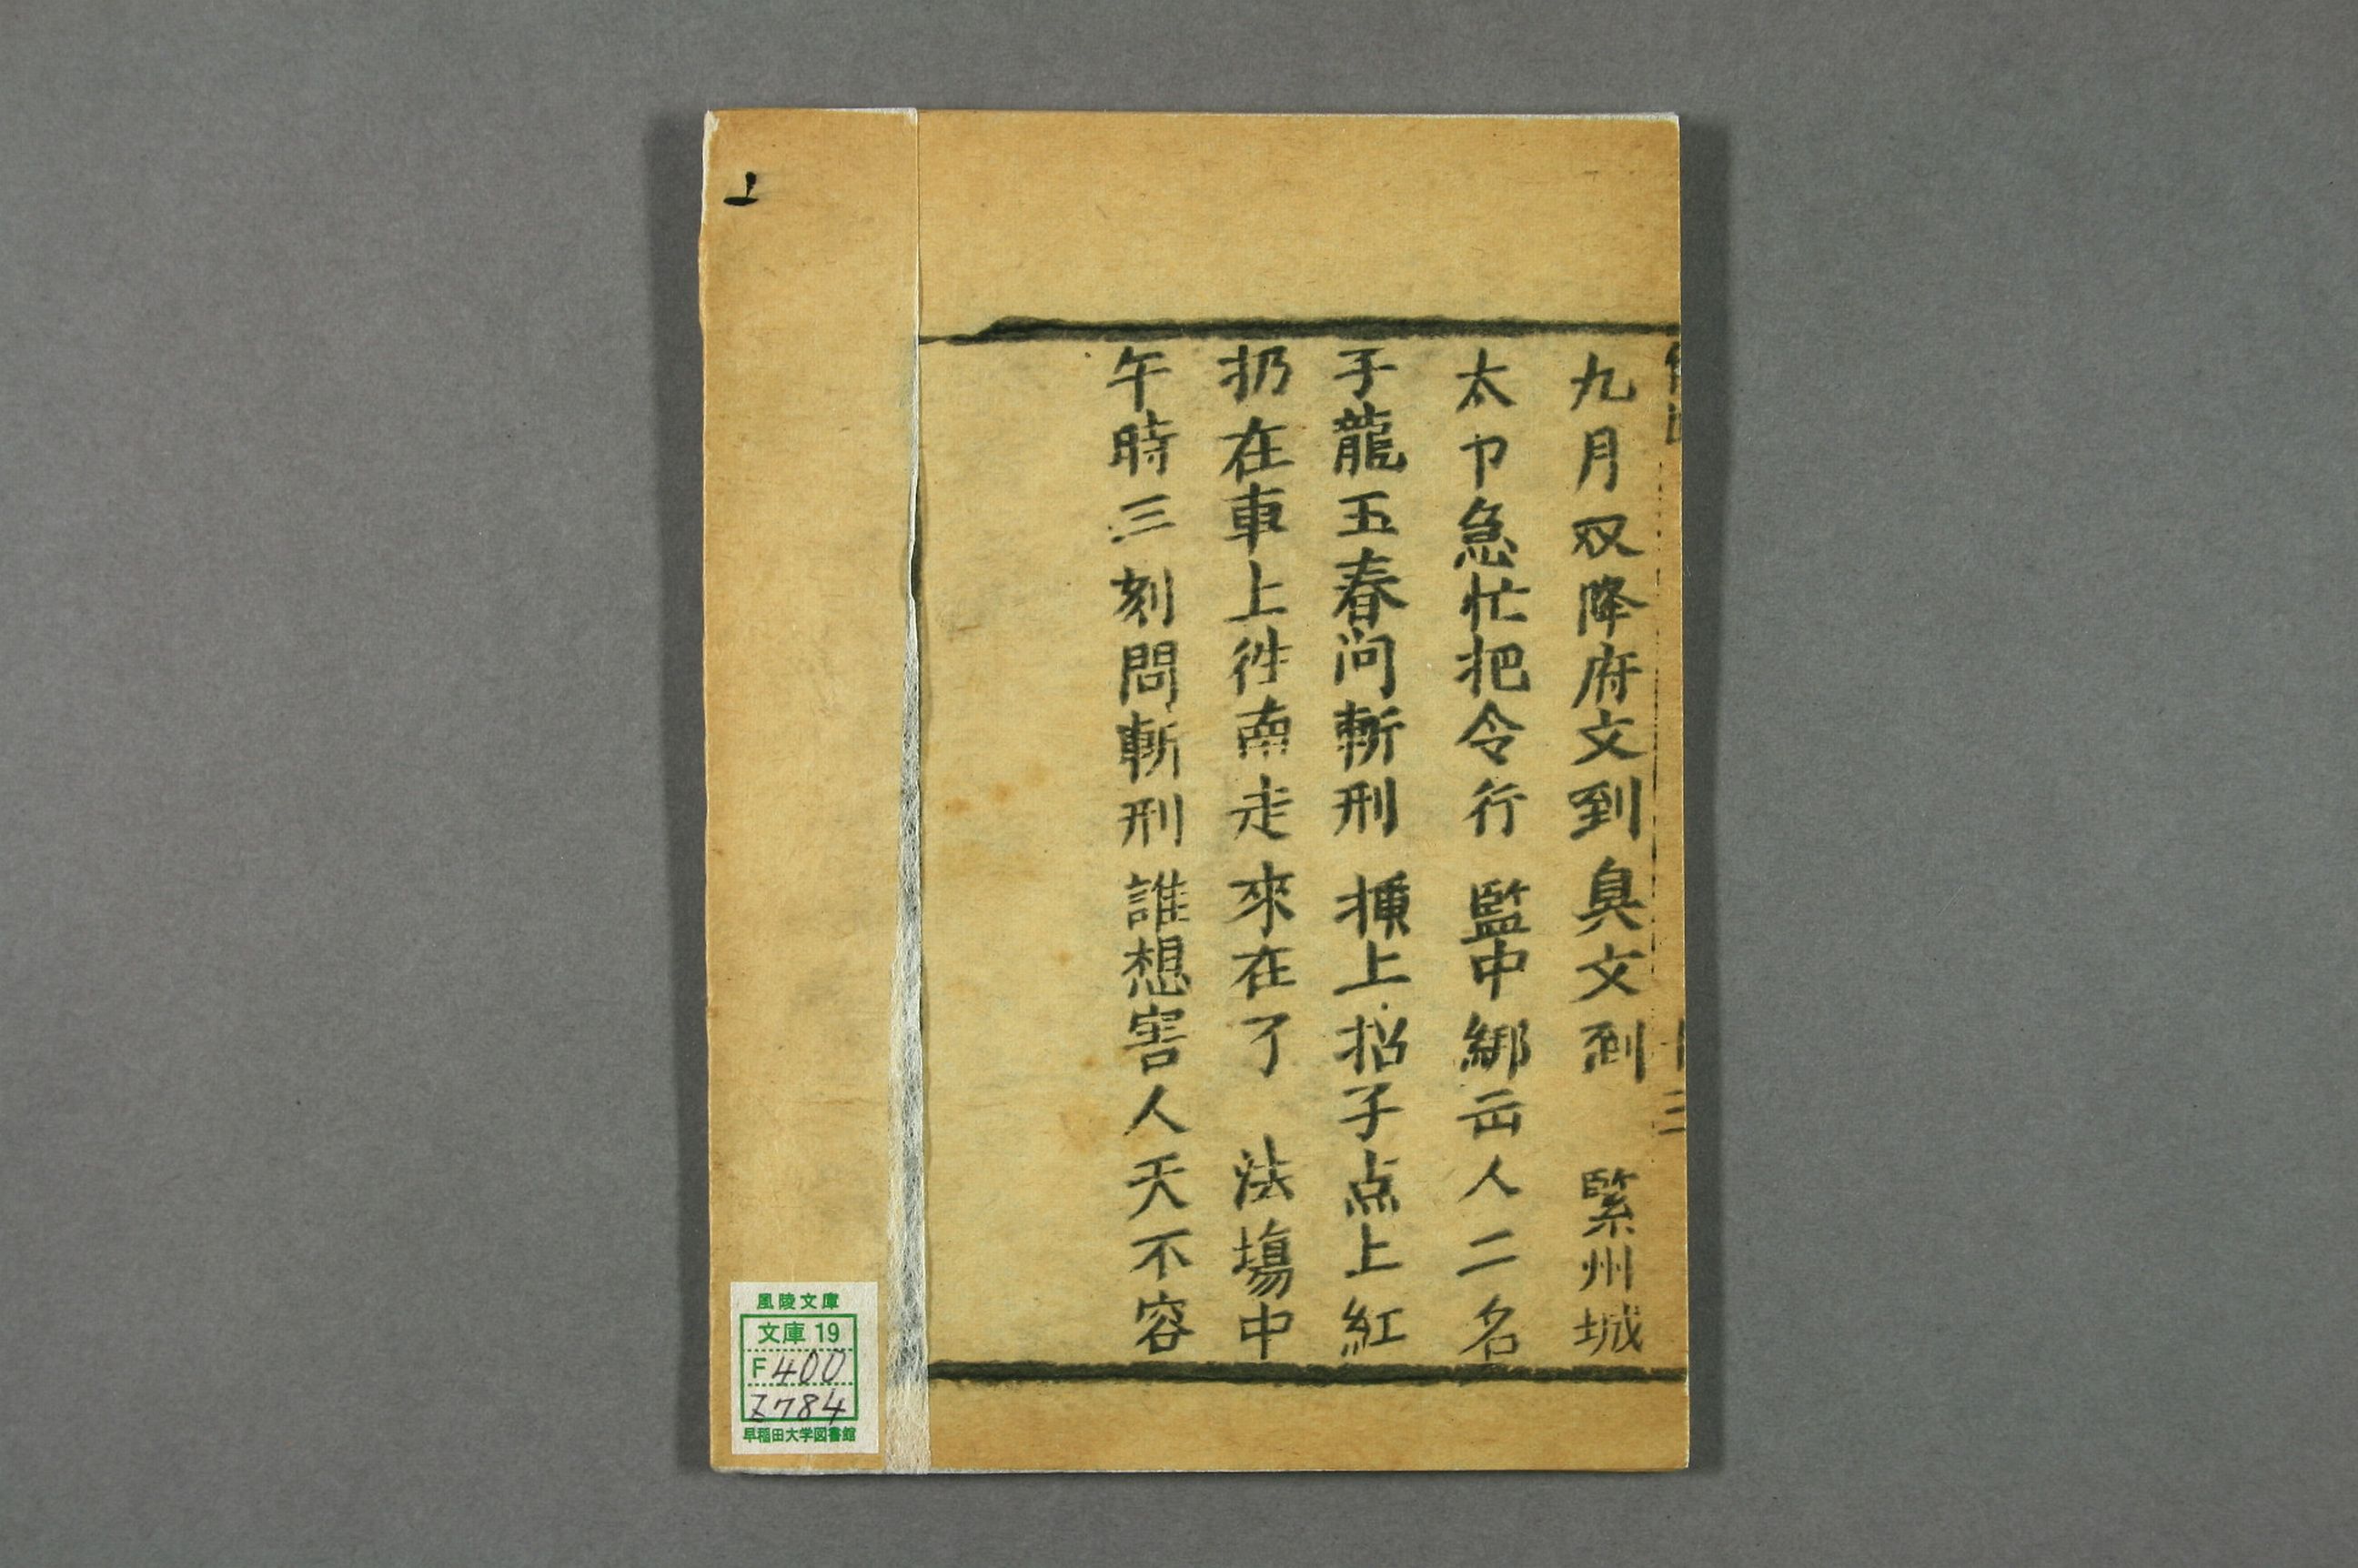 九月双降府文到臭文到 緊州城
太卩急忙把令行 監中綁出人二名
子龍五春问斬刑 擟上招子点上紅
扔在車上徃南走來在了 法塲中
午時三刻問斬刑 誰想害人天不容
上
風陵文庫
文庫 19
F 400
Z784
早稲田大学図書館